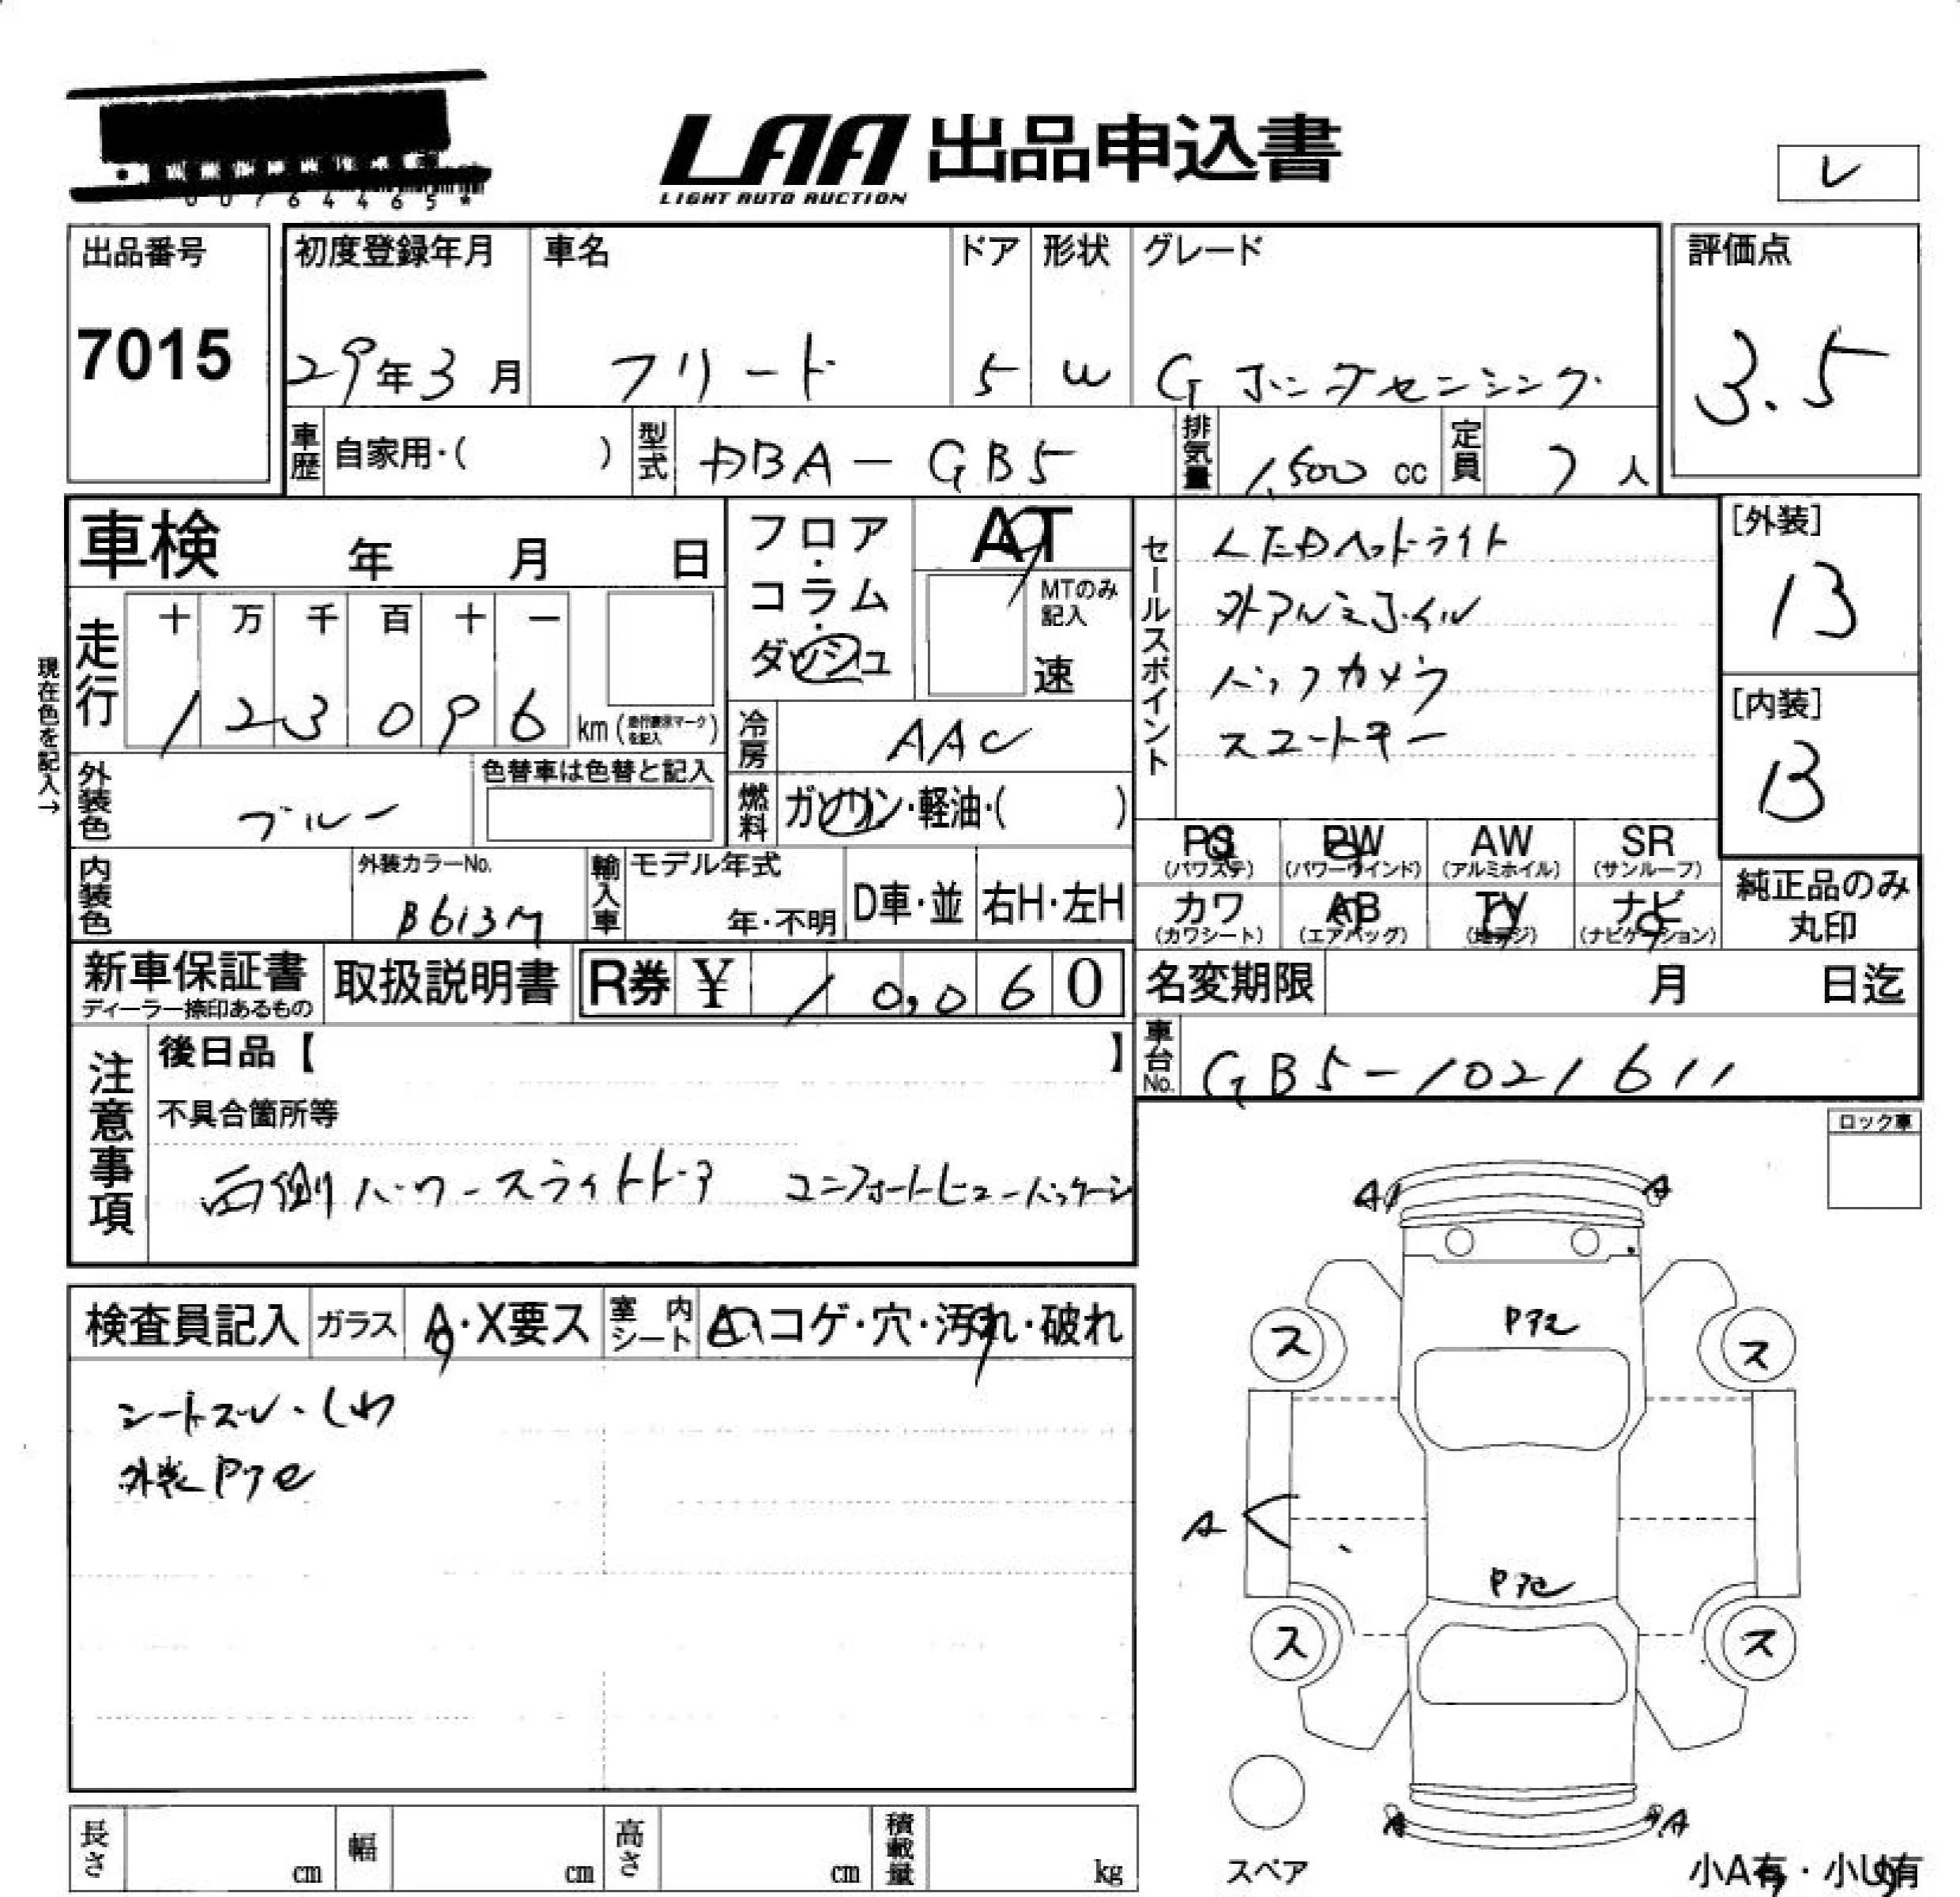 00764465*
LAA 出品申込書
LIGHT AUTO AUCTION
レ
出品番号
7015
初度登録年月 車名 ドア 形状 グレード
29年3月 フリード 5 W G ホンダセンシング
評価点
3.5
車歴 自家用・( ) 型式 DBA-GB5 排気量 1,500 cc 定員 7人
車検 年 月 日
フロア・コラム・ダッシュ
AT
MTのみ記入
速
走行 十 万 千 百 十 一
123096 km(走行要保マークを記入)
現在色を記入→
冷房 AAC
外装色 ブルー 色替車は色替と記入
燃料 ガソリン・軽油・( )
内装色 外装カラーNo. B613M
輸入車 モデル年式 年・不明 D車・並 右H・左H
セールスポイント
LEDヘッドライト
外アルミホイル
バックカメラ
スマートキー
[外装]
B
[内装]
B
PS (パワステ) PW (パワーウインド) AW (アルミホイル) SR (サンルーフ)
カワ (カワシート) AB (エアバッグ) TV (地デジ) ナビ (ナビゲーション)
純正品のみ丸印
新車保証書 ディーラー捺印あるもの 取扱説明書 R券 ¥ 10,060
名変期限 月 日迄
車台No. GB5-1021611
注意事項
後日品【 】
不具合箇所等
両側パワースライドドア コンフォートビューパッケージ
ロック車
検査員記入 ガラス A・X要ス 室内シート A・コゲ・穴・汚れ・破れ
シートスレ・しわ
外装Pアセ
A A
Pアセ
ス ス
A
Pアセ
ス ス
A A
スペア
小A有・小U有
長さ cm 幅 cm 高さ cm 積載量 kg